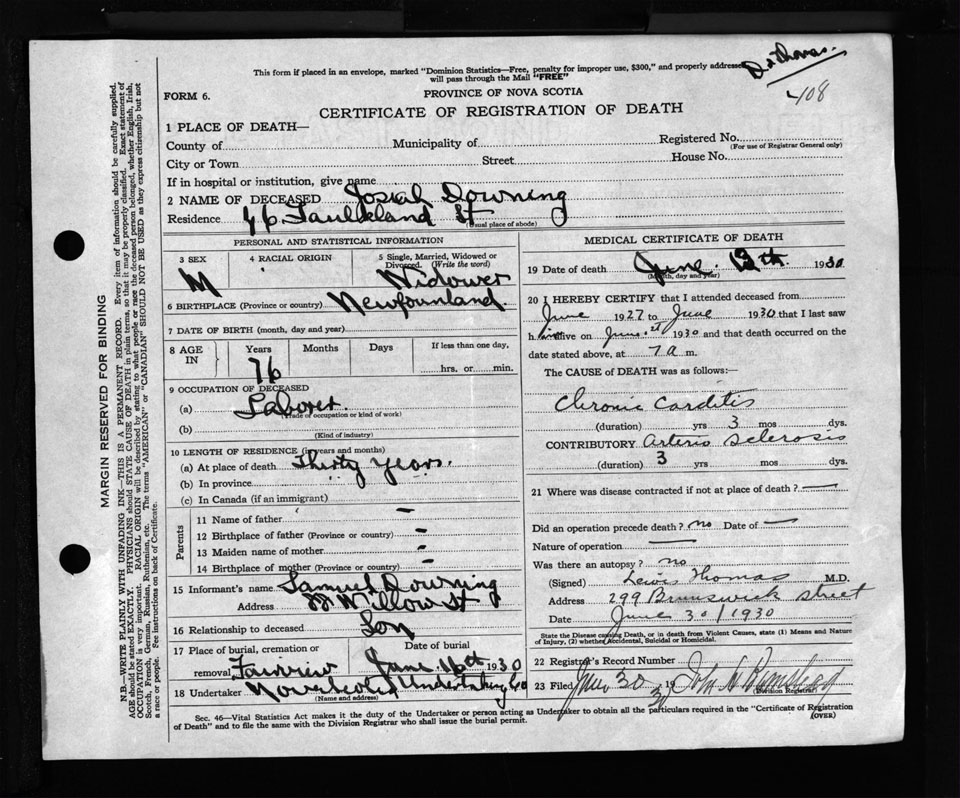 Dr Thomas.
This form if placed in an envelope, marked "Dominion Statistics—Free, penalty for improper use, $300," and properly addressed
will pass through the Mail "FREE"
408
FORM 6.
PROVINCE OF NOVA SCOTIA
CERTIFICATE OF REGISTRATION OF DEATH
1 PLACE OF DEATH—
County of Municipality of Registered No.
(For use of Registrar General only)
City or Town Street House No.
If in hospital or institution, give name
2 NAME OF DECEASED Josiah Downing
Residence 46 Faulkland St
(Usual place of abode)
PERSONAL AND STATISTICAL INFORMATION
3 SEX 4 RACIAL ORIGIN 5 Single, Married, Widowed or
Divorced. (Write the word)
M Widower
6 BIRTHPLACE (Province or country) Newfounland.
7 DATE OF BIRTH (month, day and year)
8 AGE IN Years Months Days If less than one day,
76 hrs. or min.
9 OCCUPATION OF DECEASED
(a) Laborer.
(Trade or occupation or kind of work)
(b)
(Kind of industry)
10 LENGTH OF RESIDENCE (in years and months)
(a) At place of death Thirty Years.
(b) In province
(c) In Canada (if an immigrant)
Parents
11 Name of father -
12 Birthplace of father (Province or country) -
13 Maiden name of mother -
14 Birthplace of mother (Province or country) -
15 Informant's name Samuel Downing
Address 88 Willow St
16 Relationship to deceased Son
17 Place of burial, cremation or Date of burial
removal Fairview June 16th 1930
18 Undertaker Undertaking Co
(Name and address)
MEDICAL CERTIFICATE OF DEATH
19 Date of death June. 12th. 1930
(Month, day and year)
20 I HEREBY CERTIFY that I attended deceased from
June 1927 to June 1930 that I last saw
h im alive on June 1930 and that death occurred on
date stated above, at 7 a m.
The CAUSE of DEATH was as follows:—
Chronic Carditis
(duration) yrs 3 mos dys.
CONTRIBUTORY Arterio Sclerosis
(duration) 3 yrs mos dys.
21 Where was disease contracted if not at place of death? —
Did an operation precede death? no Date of —
Nature of operation —
Was there an autopsy? no
(Signed) Lewis Thomas M.D.
Address 299 Brunswick street
Date June 30/1930
State the Disease causing Death, or in death from Violent Causes, state (1) Means and Nature
of Injury, (2) whether Accidental, Suicidal or Homicidal.
22 Registrar's Record Number
23 Filed June 30 19 30
(Division Registrar)
Sec. 46—Vital Statistics Act makes it the duty of the Undertaker or person acting as Undertaker to obtain all the particulars required in the "Certificate of Registration
of Death" and to file the same with the Division Registrar who shall issue the burial permit.
(OVER)
MARGIN RESERVED FOR BINDING
N.B.—WRITE PLAINLY WITH UNFADING INK—THIS IS A PERMANENT RECORD. Every item of information should be carefully supplied.
AGE should be stated EXACTLY. PHYSICIANS should STATE CAUSE OF DEATH in plain terms, so that it may be properly classified. Exact statement of
OCCUPATION is very important. RACIAL ORIGIN will be described by stating to what people or race the deceased person belonged, whether English, Irish,
Scotch, French, German, Russian, Ruthenian, etc. The terms "AMERICAN" or "CANADIAN" SHOULD NOT BE USED as they express citizenship but not
a race or people. See instructions on back of Certificate.